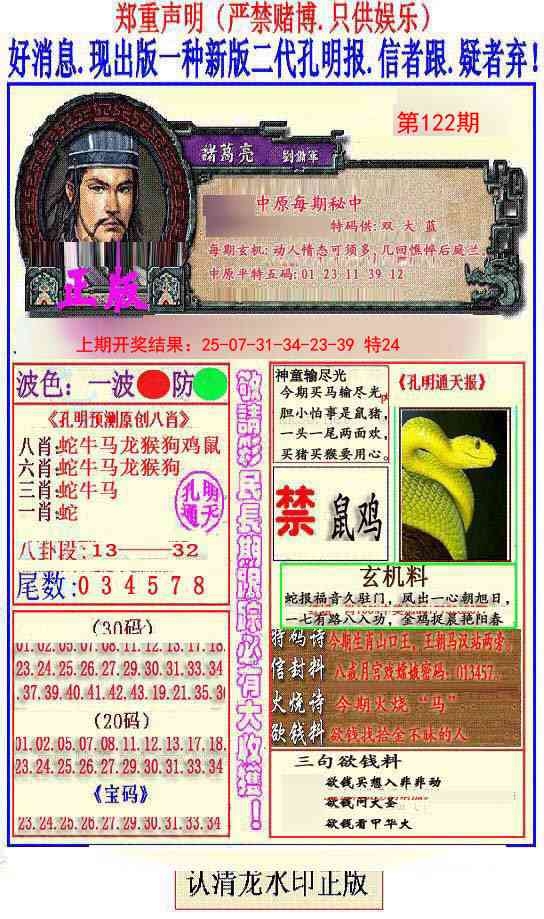 郑重声明（严禁赌博.只供娱乐）
好消息.现出版一种新版二代孔明报.信者跟.疑者弃！
第122期
諸葛亮
中原每期秘中
特码供: 双 大 蓝
每期玄机: 动人情态可须多, 几回憔悴后庭兰.
中原平特五码: 01 23 11 39 12
正版
上期开奖结果：25-07-31-34-23-39 特24
波色：一波 防
《孔明预测原创八肖》
八肖:蛇牛马龙猴狗鸡鼠
六肖:蛇牛马龙猴狗
三肖:蛇牛马
一肖:蛇
孔明
通天
八卦段:13——32
尾数:034578
(30码)
01.02.05.07.08.11.12.13.17.18.
23.24.25.26.27.29.30.31.33.34
.37.39.40.41.42.43.19.21.35.3
(20码)
01.02.05.07.08.11.12.13.17.18
23.24.25.26.27.29.30.31.33.34
《宝码》
23.24.25.26.27.29.30.31.33.34
敬請彩民長期跟踪必有大收獲！
神童输尽光
今期买马输尽光,
胆小怕事是鼠猪,
一头一尾两面欢,
买猪买猴要用心。
《孔明通天报》
禁 鼠鸡
玄机料
蛇报福音久驻门，凤出一心朝旭日，
一七有路八入功，金鸡捉襄艳阳春
特码诗 今期生肖山口王, 王朝马汉站两旁。
信封料 密码: 013457.
火烧诗 今期火烧“马”
欲钱料 欲钱找拾金不昧的人
三句欲钱料
欲钱买想入非非动
欲钱问大圣
欲钱看甲华火
认清龙水印正版